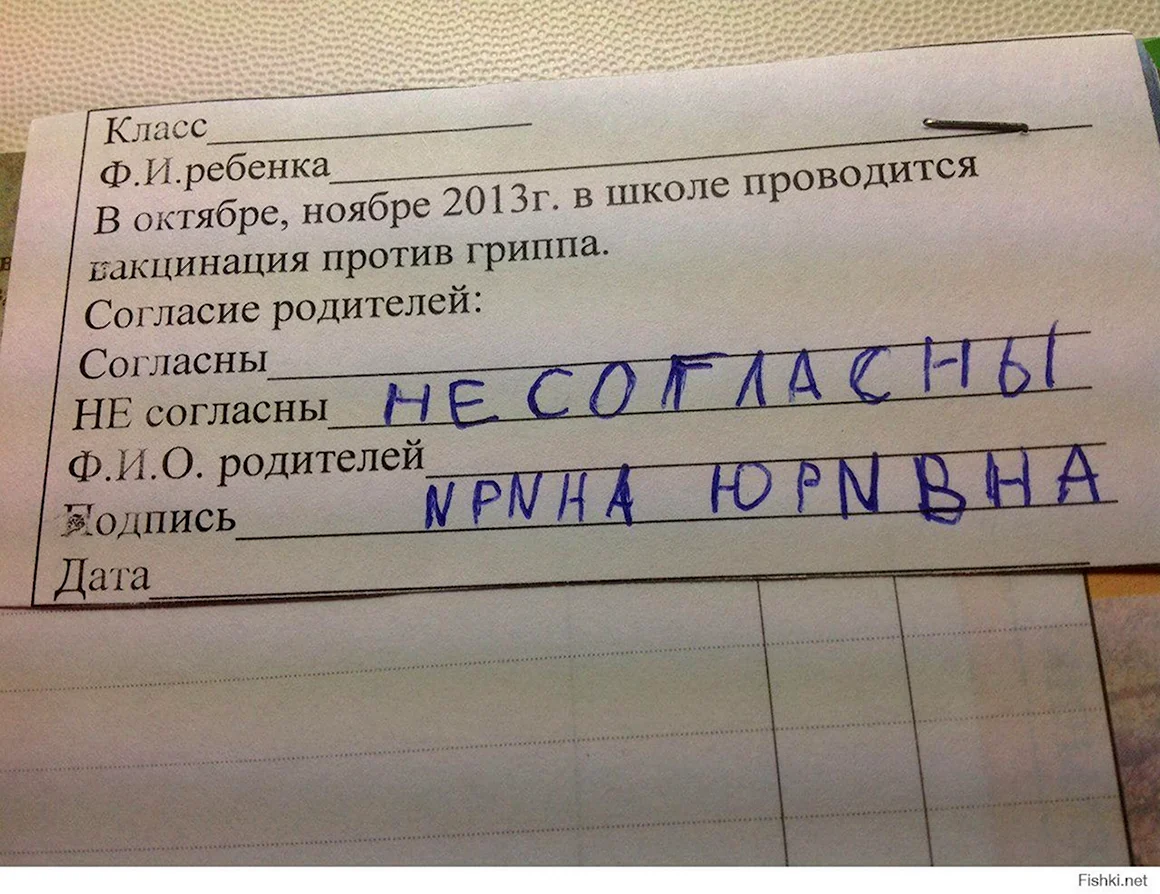 Класс
Ф.И.ребенка
В октябре, ноябре 2013г. в школе проводится
вакцинация против гриппа.
Согласие родителей:
Согласны
НЕ согласны НЕСОГЛАСНЫ
Ф.И.О. родителей
Подпись NPNНА ЮРNВНА
Дата
Fishki.net